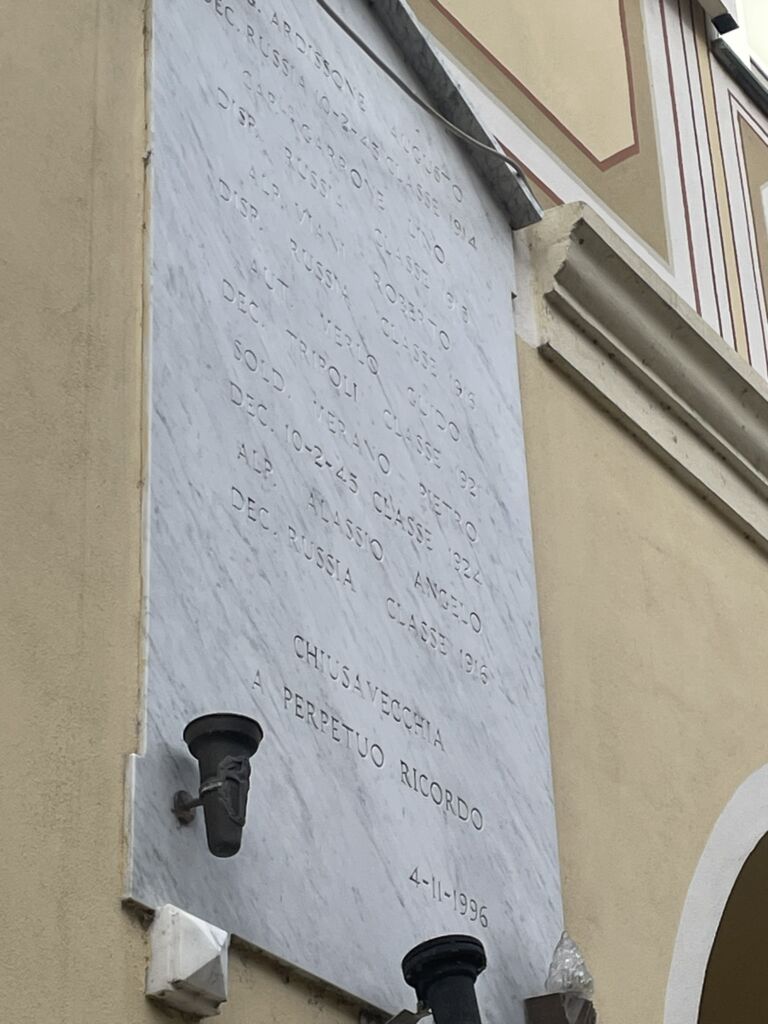 G. ARDISSONE AUGUSTO
DEC. RUSSIA 10-2-45 CLASSE 1914
GARRONE LINO
DISP. RUSSIA CLASSE 1918
ALP. VIANI ROBERTO
DISP. RUSSIA CLASSE 1916
AUT. MERLO GUIDO
DEC. TRIPOLI CLASSE 1921
SOLD. VERANO PIETRO
DEC. 10-2-45 CLASSE 1924
ALP. ALASSIO ANGELO
DEC. RUSSIA CLASSE 1916
CHIUSAVECCHIA
A PERPETUO RICORDO
4-11-1996